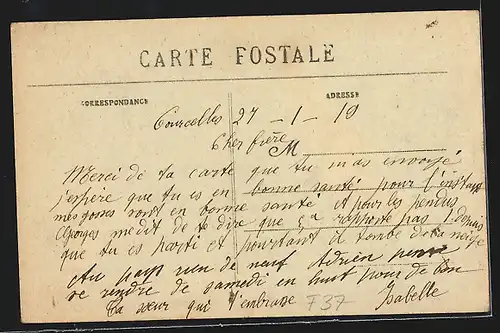 CARTE POSTALE
CORRESPONDANCE
ADRESSE
Courcelles 27 - 1 - 19
Cher frère
M
Merci de ta carte que tu m'as envoyé
j'espère que tu es en bonne santé pour l'instant
mes gosses sont en bonne santé et pour les pendus
Georges me dit de te dire que ça rapporte pas 1. Depuis
que tu es parti et pourtant il tombe de la neige
Au pays rien de neuf Adrien pense
se rendre de samedi en huit pour de bon
Ta sœur qui t'embrasse
Isabelle
F37